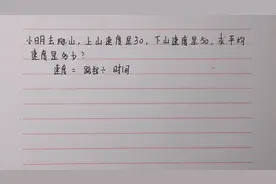 小明去爬山，上山速度是30，下山速度是50，求平均
速度是多少？
速度 = 路程 ÷ 时间